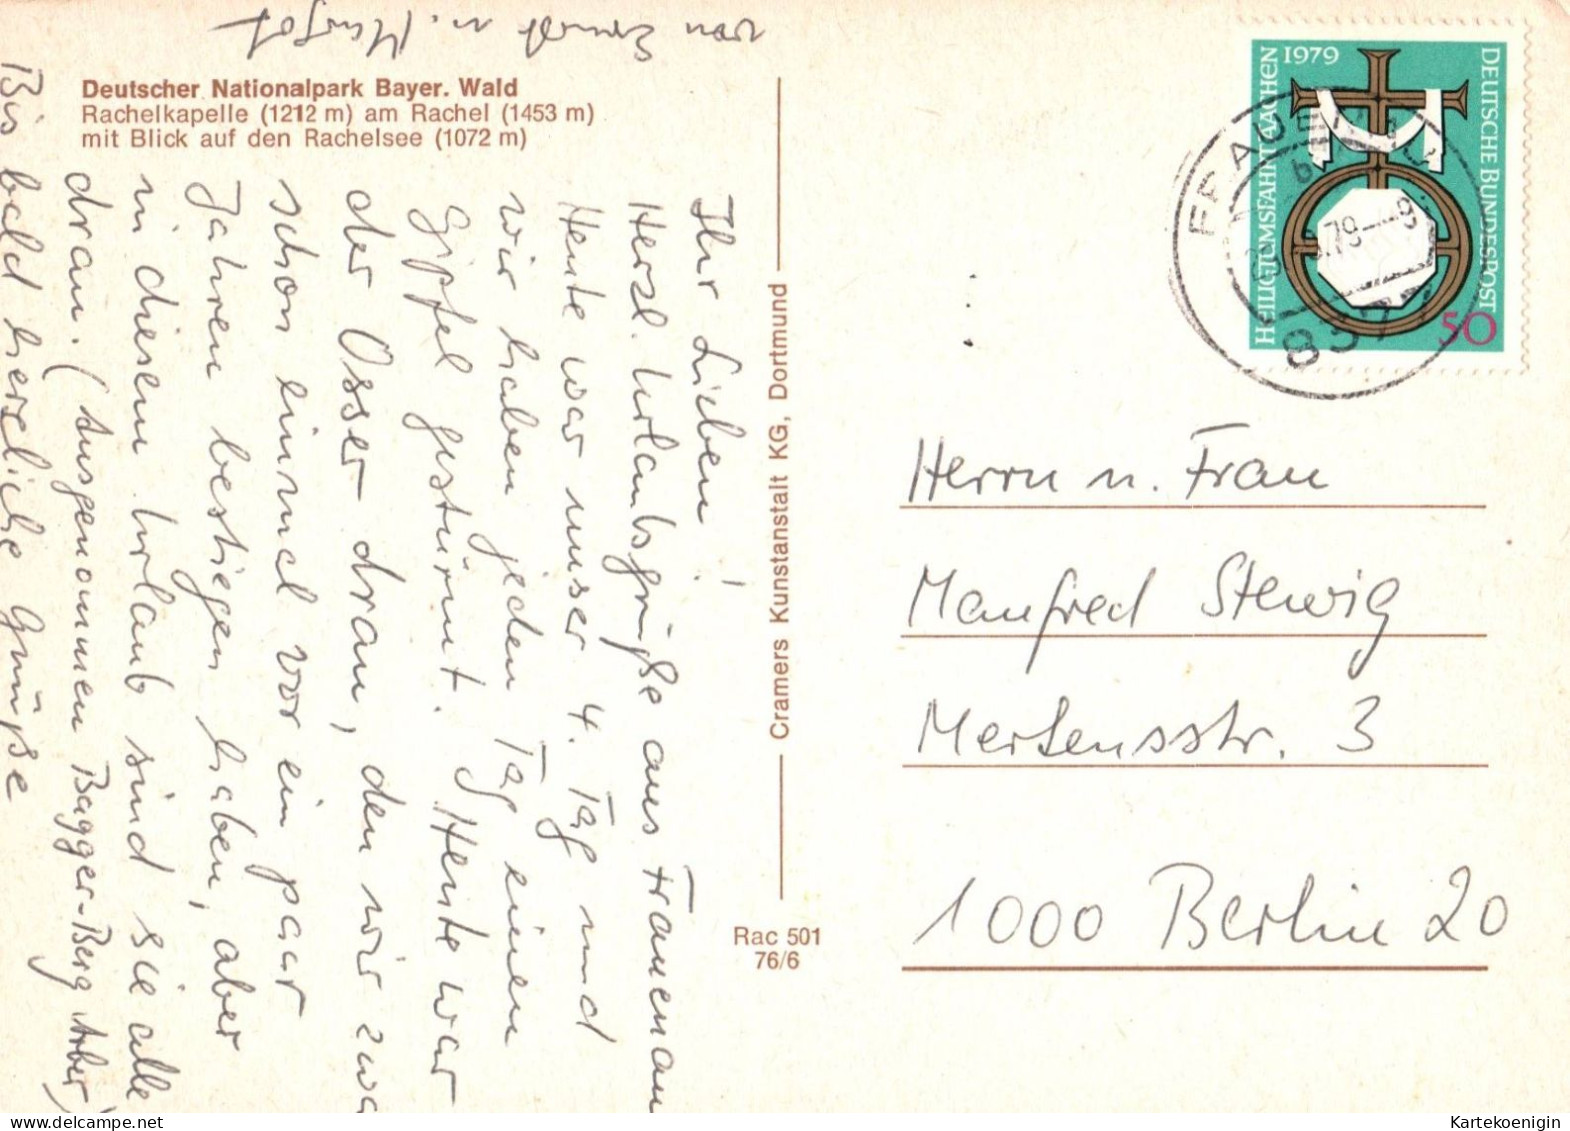 von Ernst u.
Deutscher Nationalpark Bayer. Wald
Rachelkapelle (1212 m) am Rachel (1453 m)
mit Blick auf den Rachelsee (1072 m)
Ihr Lieben!
Herzl. Urlaubsgrüße aus Frauenau
Heute war unser 4. Tag und
wir haben jeden Tag einen
Gipfel gestürmt. Heute war
der Osser dran, den wir zwar
schon einmal vor ein paar
Jahren bestiegen haben, aber
in diesem Urlaub sind sie alle
dran. (Ausgenommen Bagger-Berg Arber)
Bis bald herzliche Grüße
Cramers Kunstanstalt KG, Dortmund
Rac 501
76/6
1979
HEILIGTUMSFAHRT AACHEN
DEUTSCHE BUNDESPOST
50
FRAUENAU
b
8377
Herrn u. Frau
Manfred Stewig
Mertensstr. 3
1000 Berlin 20
www.delcampe.net
Kartekoenigin